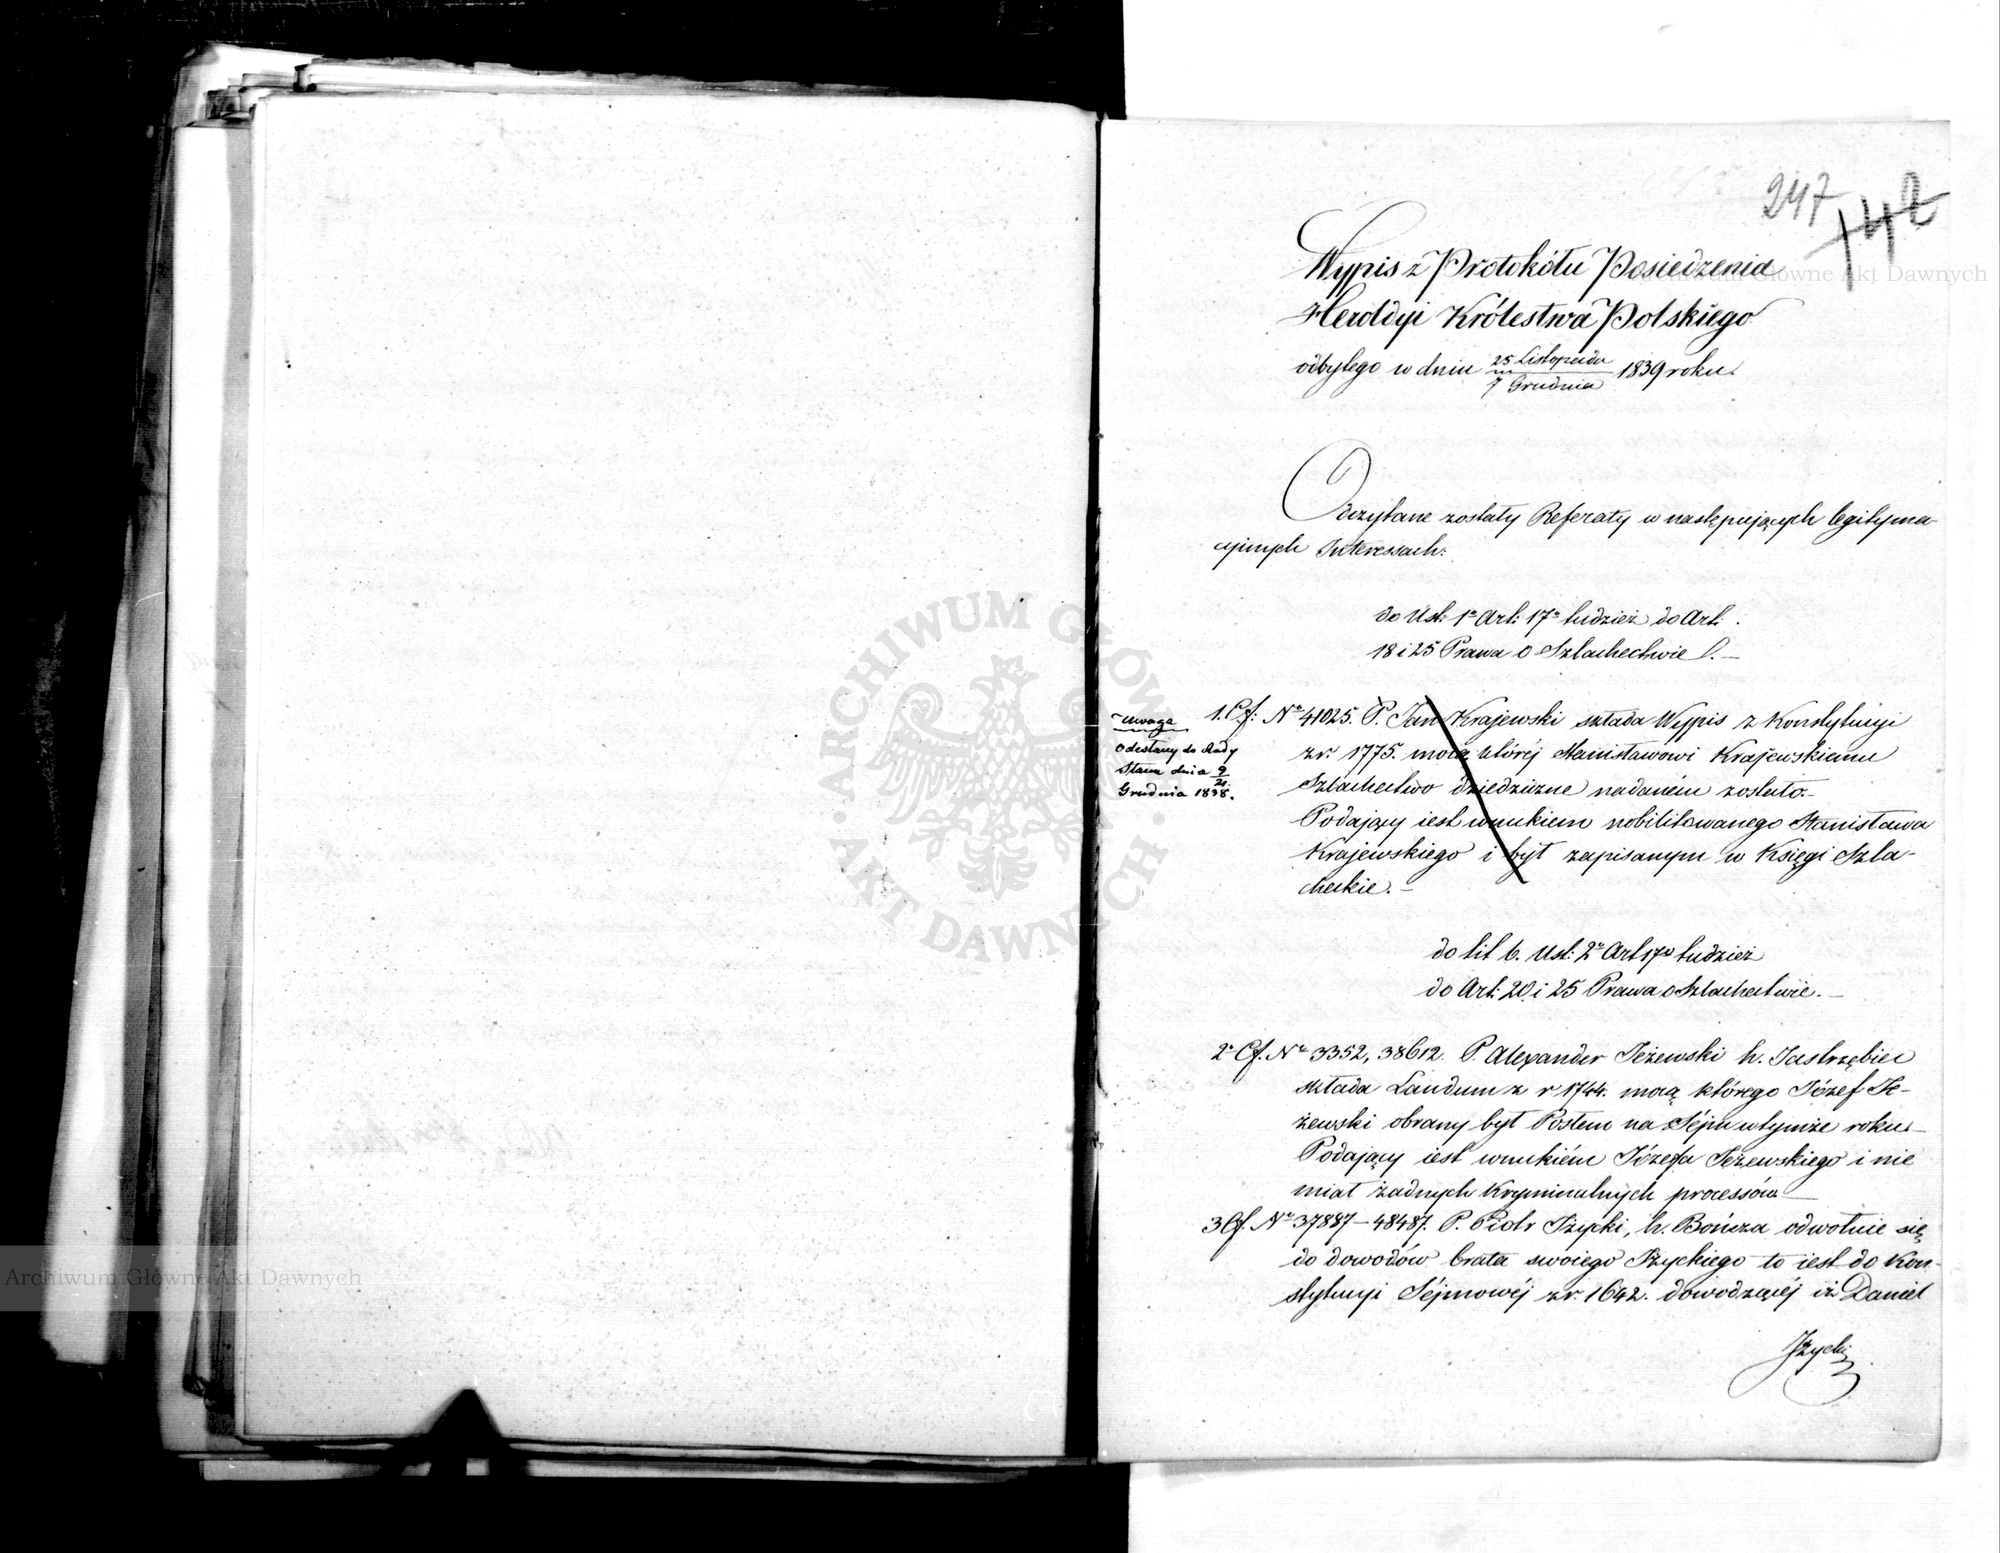 247
142
Wypis z Protokółu Posiedzenia
Heroldyi Królestwa Polskiego
odbytego w dniu 25 Listopada / 7 Grudnia 1839 roku.
Odczytane zostały Referaty w następujących legityma-
cyinych Interessach:
do Ust: 1o Art: 17o tudzież do Art:
18 i 25 Prawa o Szlachectwie
Uwaga
Odesłany do Rady
Stanu dnia 9/21
Grudnia 1838.
1. Cf: No 41025. P. Jan Krajewski składa Wypis z Konstytucyi
z r. 1775. mocą któréj Stanisławowi Krajewskiemu
Szlachectwo dziedziczne nadaném zostało.
Podający iest wnukiem nobilitowanego Stanisława
Krajewskiego i był zapisanym w Księgi Szla-
checkie. –
do lit b. Ust: 2o Art 17o tudzież
do Art: 20 i 25 Prawa o Szlachectwie. –
2o Cf. No 3352, 38612. P. Alexander Jeżewski h. Jastrzębiec
składa Laudum z r 1744. mocą którego Józef Je-
żewski obrany był Posłem na Séjm w tymże roku. –
Podający iest wnukiém Józefa Jeżewskiego i nie
miał żadnych kryminalnych processów –
3 Cf. No 37887 – 48487. P. Piotr Iżycki, h. Bończa odwołuie się
do dowodów brata swoiego Iżyckiego to iest do Kon-
stytucyi Séjmowéj z r. 1642. dowodzącéj iż Daniel
Iżycki
ARCHIWUM GŁÓWNE
AKT DAWNYCH
Archiwum Główne Akt Dawnych
Archiwum Główne Akt Dawnych